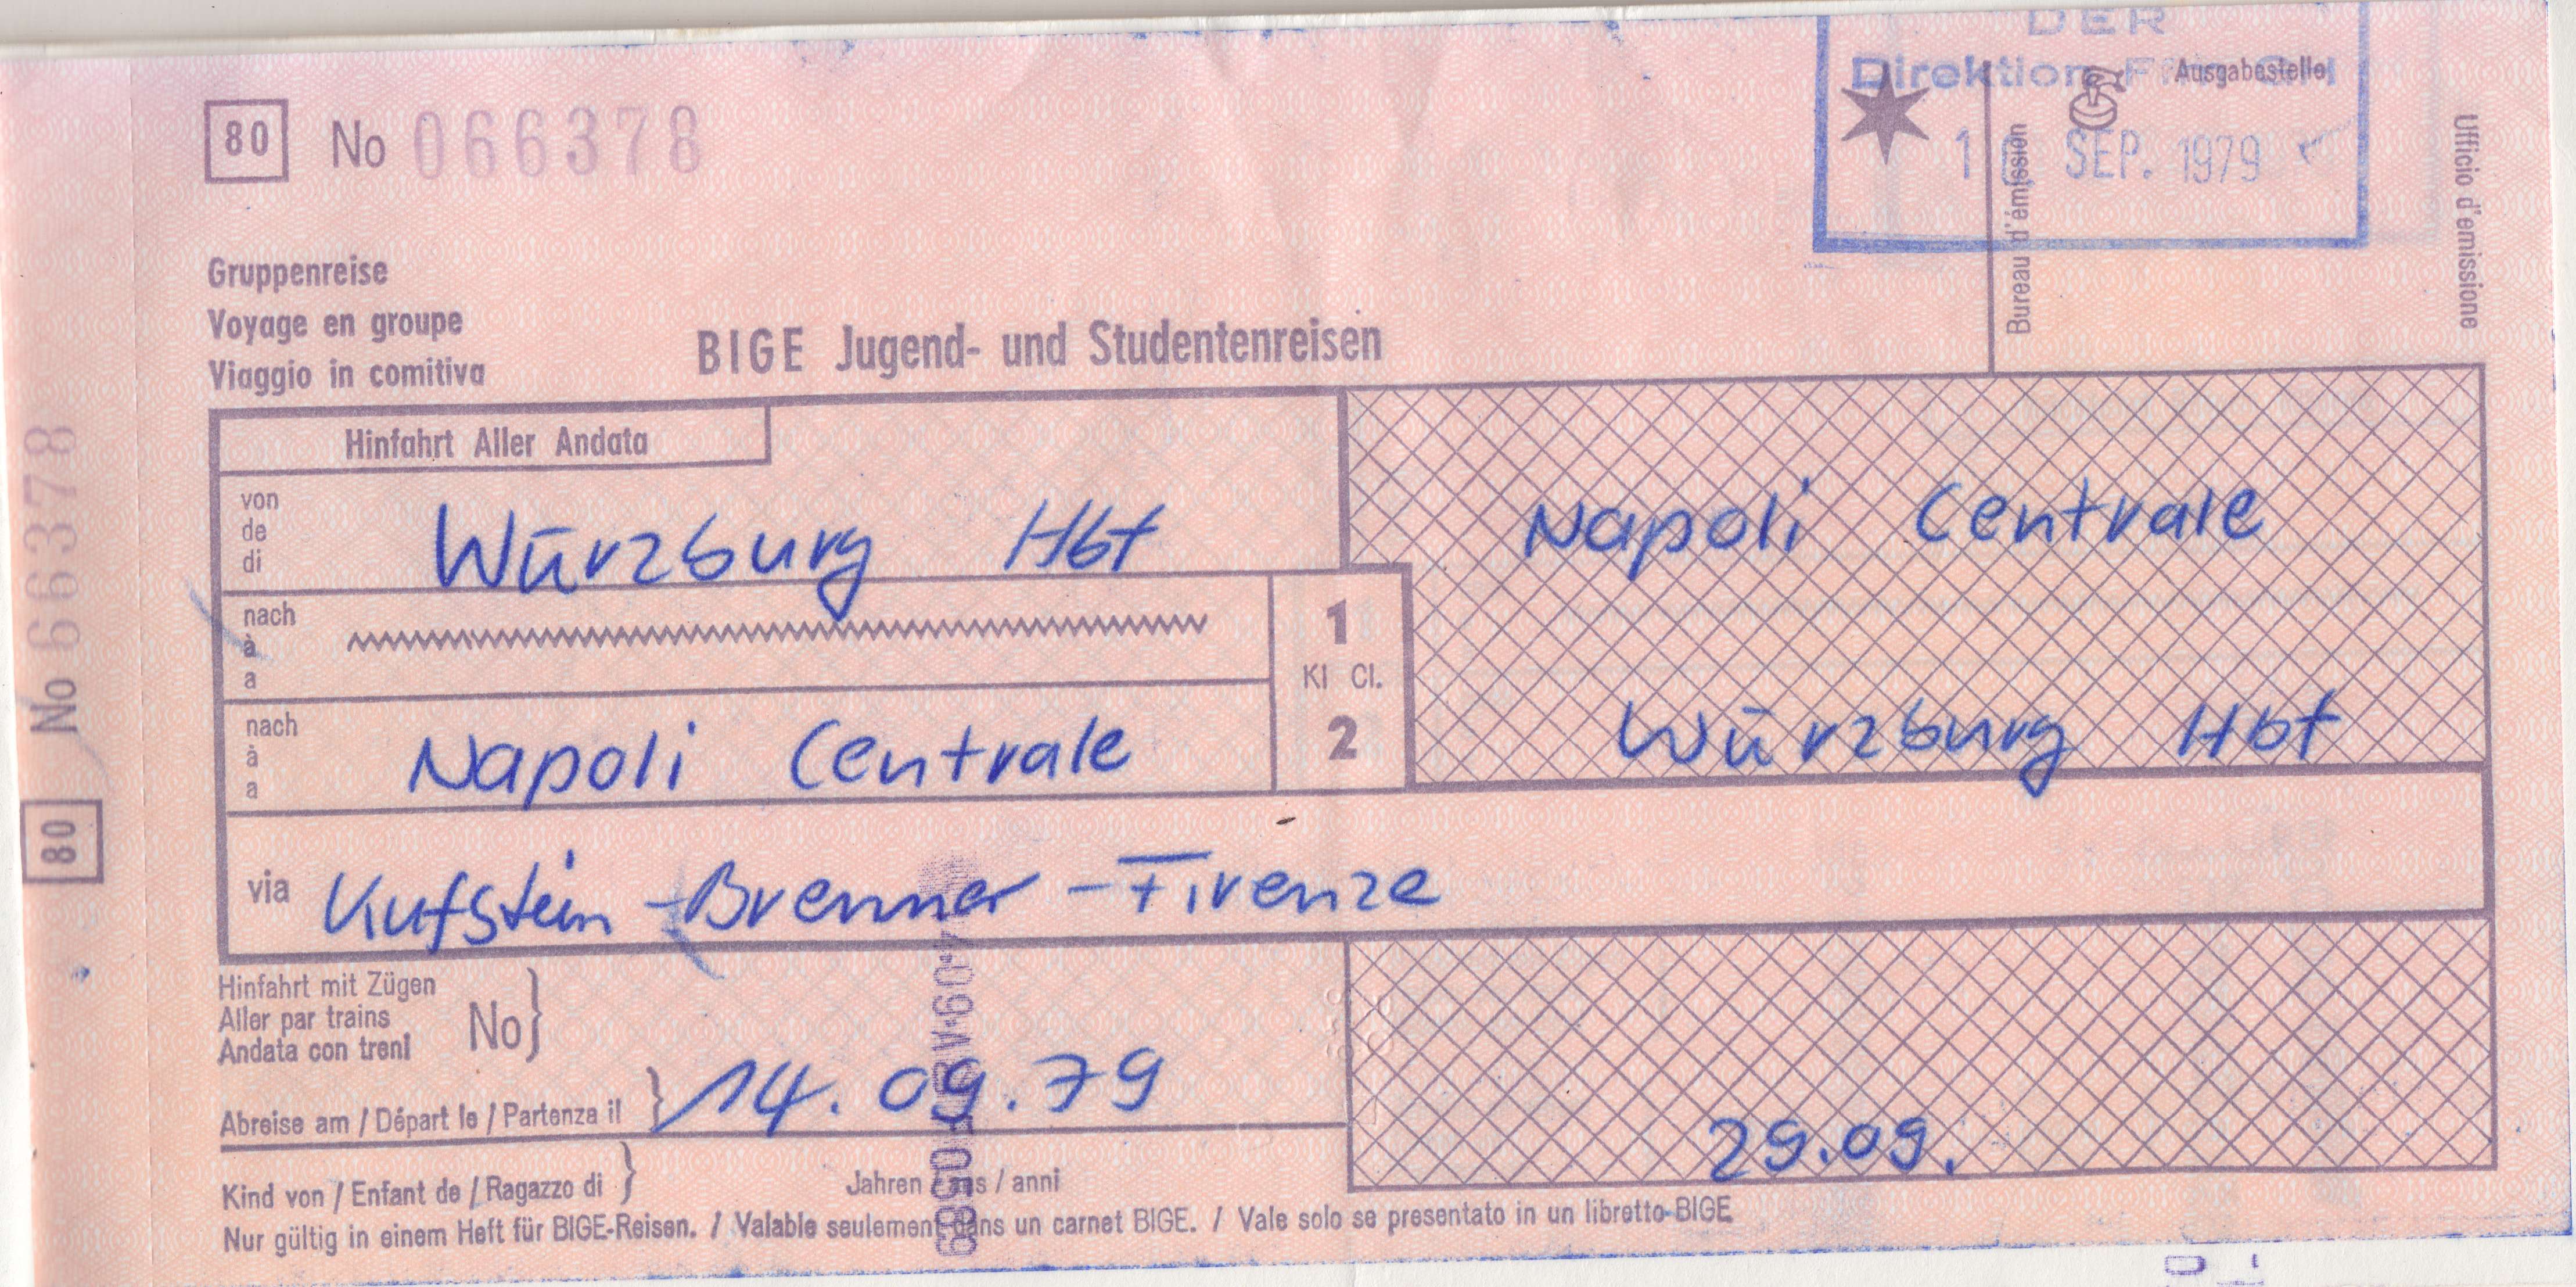 DER
Direktion
Ausgabestelle
80 No 066378
SEP. 1979
Bureau d'émission
Ufficio d'emissione
Gruppenreise
Voyage en groupe
Viaggio in comitiva
BIGE Jugend- und Studentenreisen
Hinfahrt Aller Andata
von
de
di
Würzburg Hbf
Napoli Centrale
nach
à
a
1
Kl Cl.
2
nach
à
a
Napoli Centrale
Würzburg Hbf
via Kufstein - Brenner - Firenze
Hinfahrt mit Zügen
Aller par trains
Andata con treni
No
Abreise am / Départ le / Partenza il 14.09.79
29.09.
Kind von / Enfant de / Ragazzo di
Jahren / ans / anni
Nur gültig in einem Heft für BIGE-Reisen. / Valable seulement dans un carnet BIGE. / Vale solo se presentato in un libretto BIGE
80 No 066378